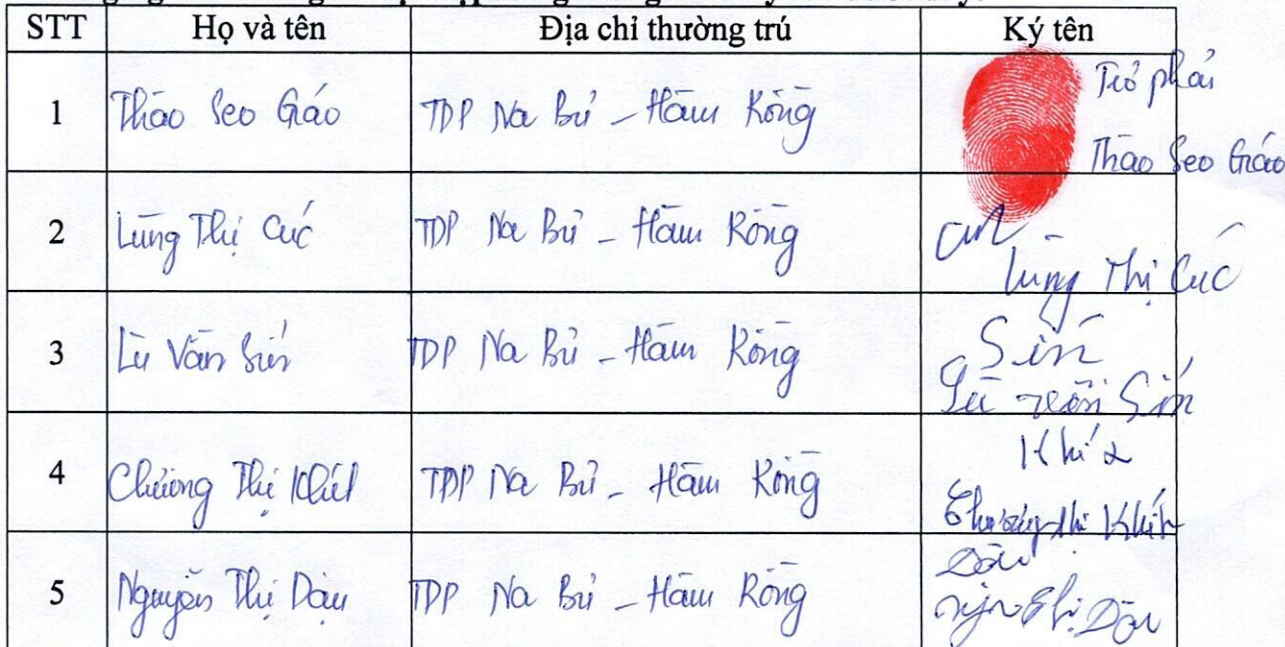 STT Họ và tên Địa chỉ thường trú Ký tên
1 Thào Seo Gáo TDP Na Bủ - Hàm Rồng Trỏ phải
Thào Seo Gáo
2 Lùng Thị Cúc TDP Na Bủ - Hàm Rồng Cúc
Lùng Thị Cúc
3 Lù Văn Sín TDP Na Bủ - Hàm Rồng Sín
Lù Văn Sín
4 Thị TDP Na Bủ - Hàm Rồng
Thị
5 Nguyễn Thị Dậu TDP Na Bủ - Hàm Rồng
Thị Dậu